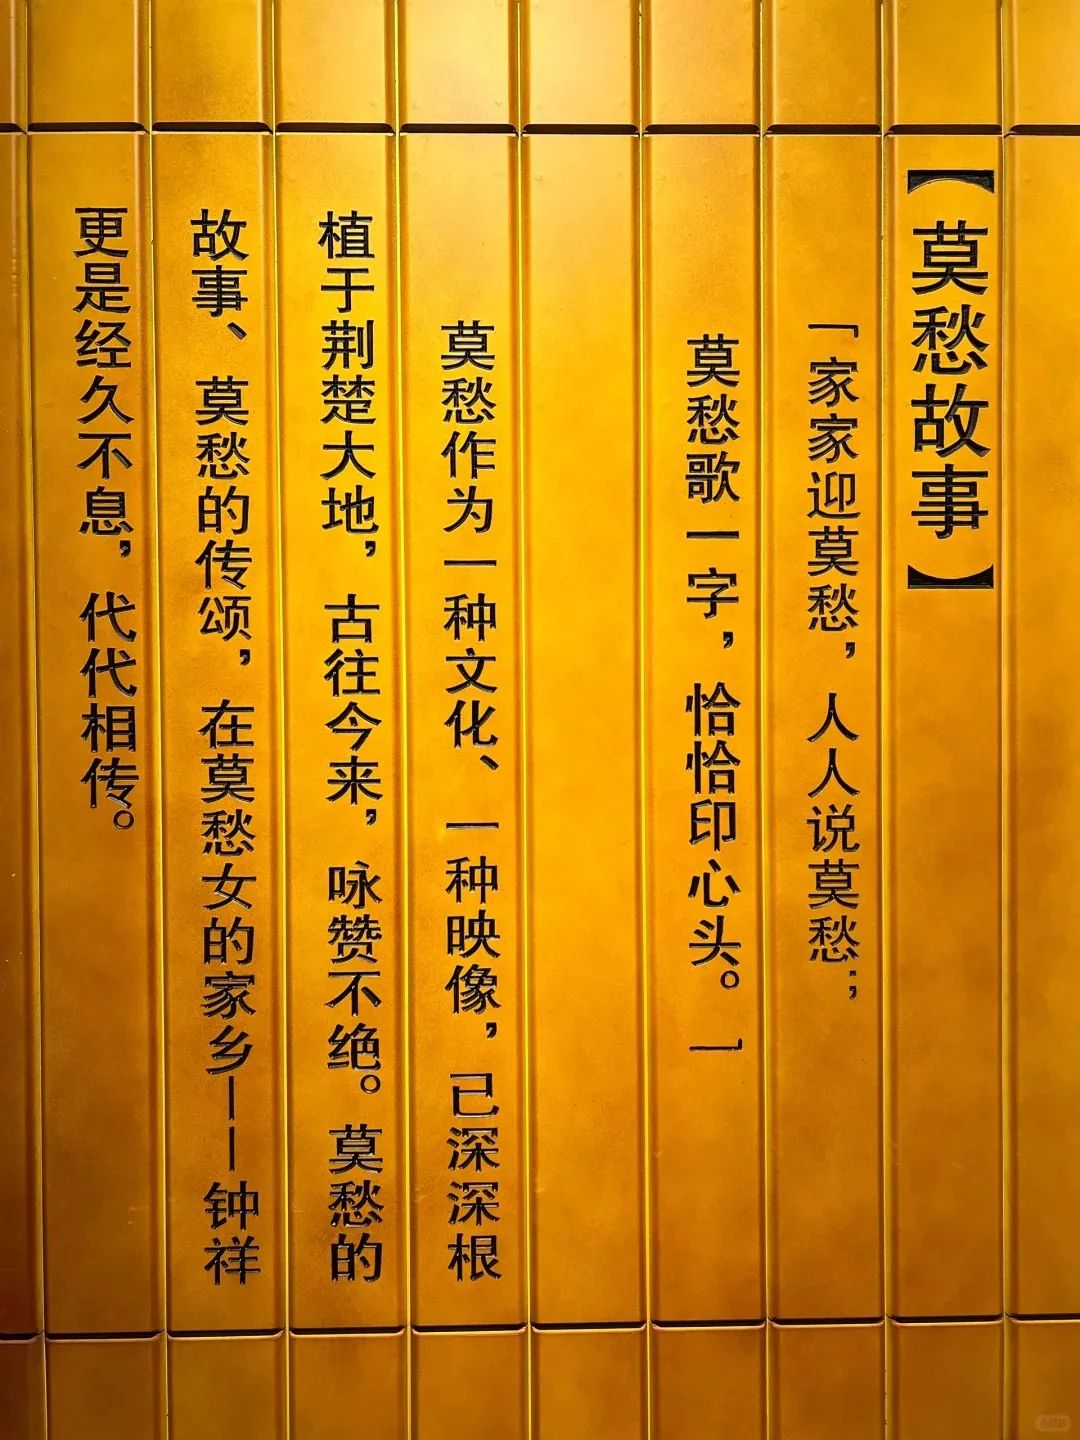 【莫愁故事】
「家家迎莫愁，人人说莫愁；
莫愁歌一字，恰恰印心头。」
莫愁作为一种文化、一种映像，已深深根
植于荆楚大地，古往今来，咏赞不绝。莫愁的
故事、莫愁的传颂，在莫愁女的家乡——钟祥
更是经久不息，代代相传。